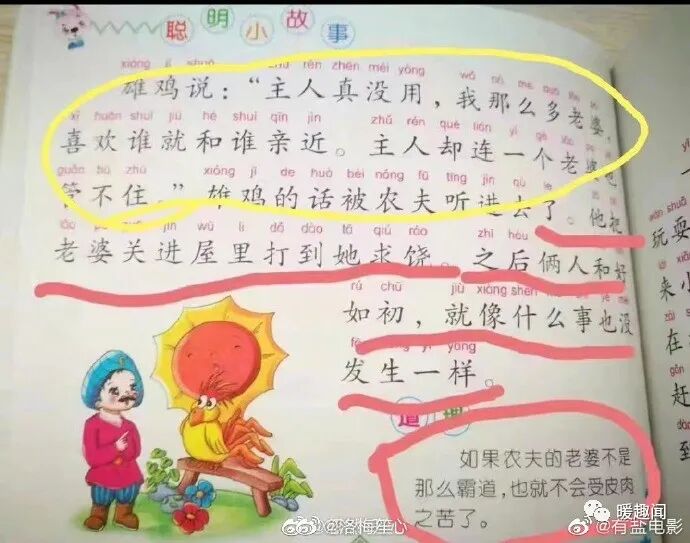 聪明小故事
xióng jī shuō zhǔ rén zhēn méi yòng
雄鸡说：“主人真没用，我那么多老婆，
xǐ huān shuí jiù hé shuí qīn jìn zhǔ rén què lián yí gè lǎo pó
喜欢谁就和谁亲近。主人却连一个老婆也
guǎn bú zhù xióng jī de huà bèi nóng fū tīng jìn qù le
管不住。”雄鸡的话被农夫听进去了。他把
lǎo pó guān jìn wū lǐ dǎ dào tā qiú ráo zhī hòu
老婆关进屋里打到她求饶。之后俩人和好
rú chū jiù xiàng shén
如初，就像什么事也没
发生一样。
道理
如果农夫的老婆不是
那么霸道，也就不会受皮肉
之苦了。
玩耍
来小
在
赶
到
暖趣闻
@有盐电影